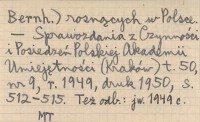 Bernh.) rosnących w Polsce.
— Sprawozdania z Czynności
i Posiedzeń Polskiej Akademii
Umiejętności (Kraków) t. 50,
nr 9, r. 1949, druk 1950, s.
512-515. Też odb: jw. 1949 r.
MT